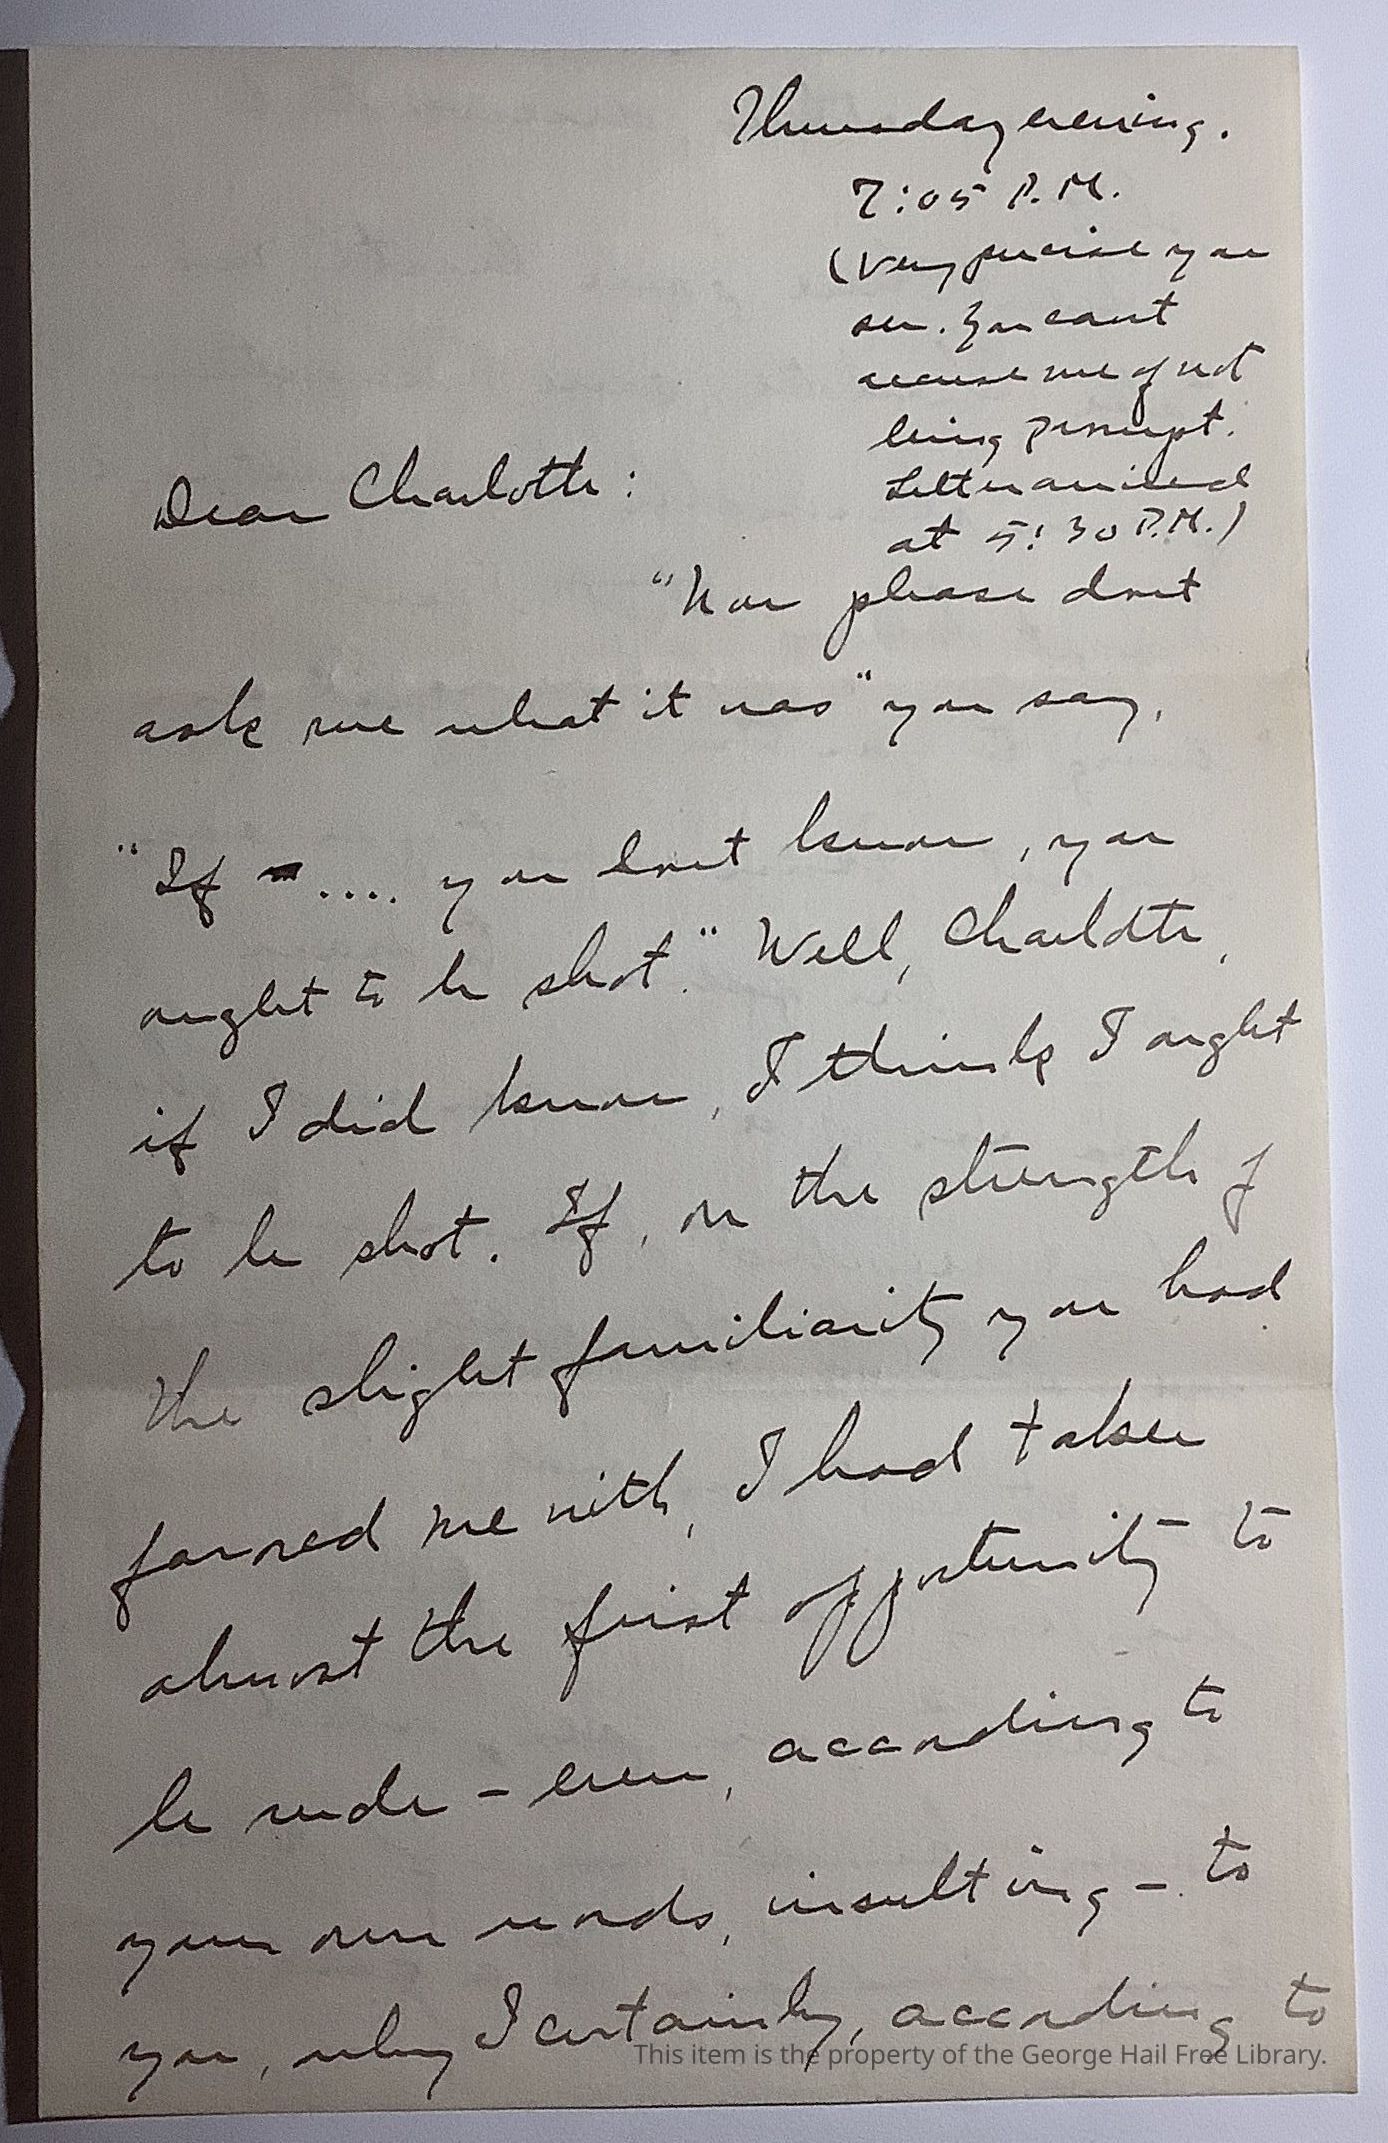 Thursday evening.
7:05 P.M.
(Very precise you
see. You cant
accuse me of not
being prompt.
Letter arrived
at 5:30 P.M.)
Dear Charlotte:
"Now please dont
ask me what it was" you say,
"If .... you dont know, you
ought to be shot." Well, Charlotte,
if I did know, I think I ought
to be shot. If, on the strength of
the slight familiarity you had
favored me with, I had taken
almost the first opportunity to
be rude – even, according to
your own words, insulting – to
you, why I certainly, according to
This item is the property of the George Hail Free Library.